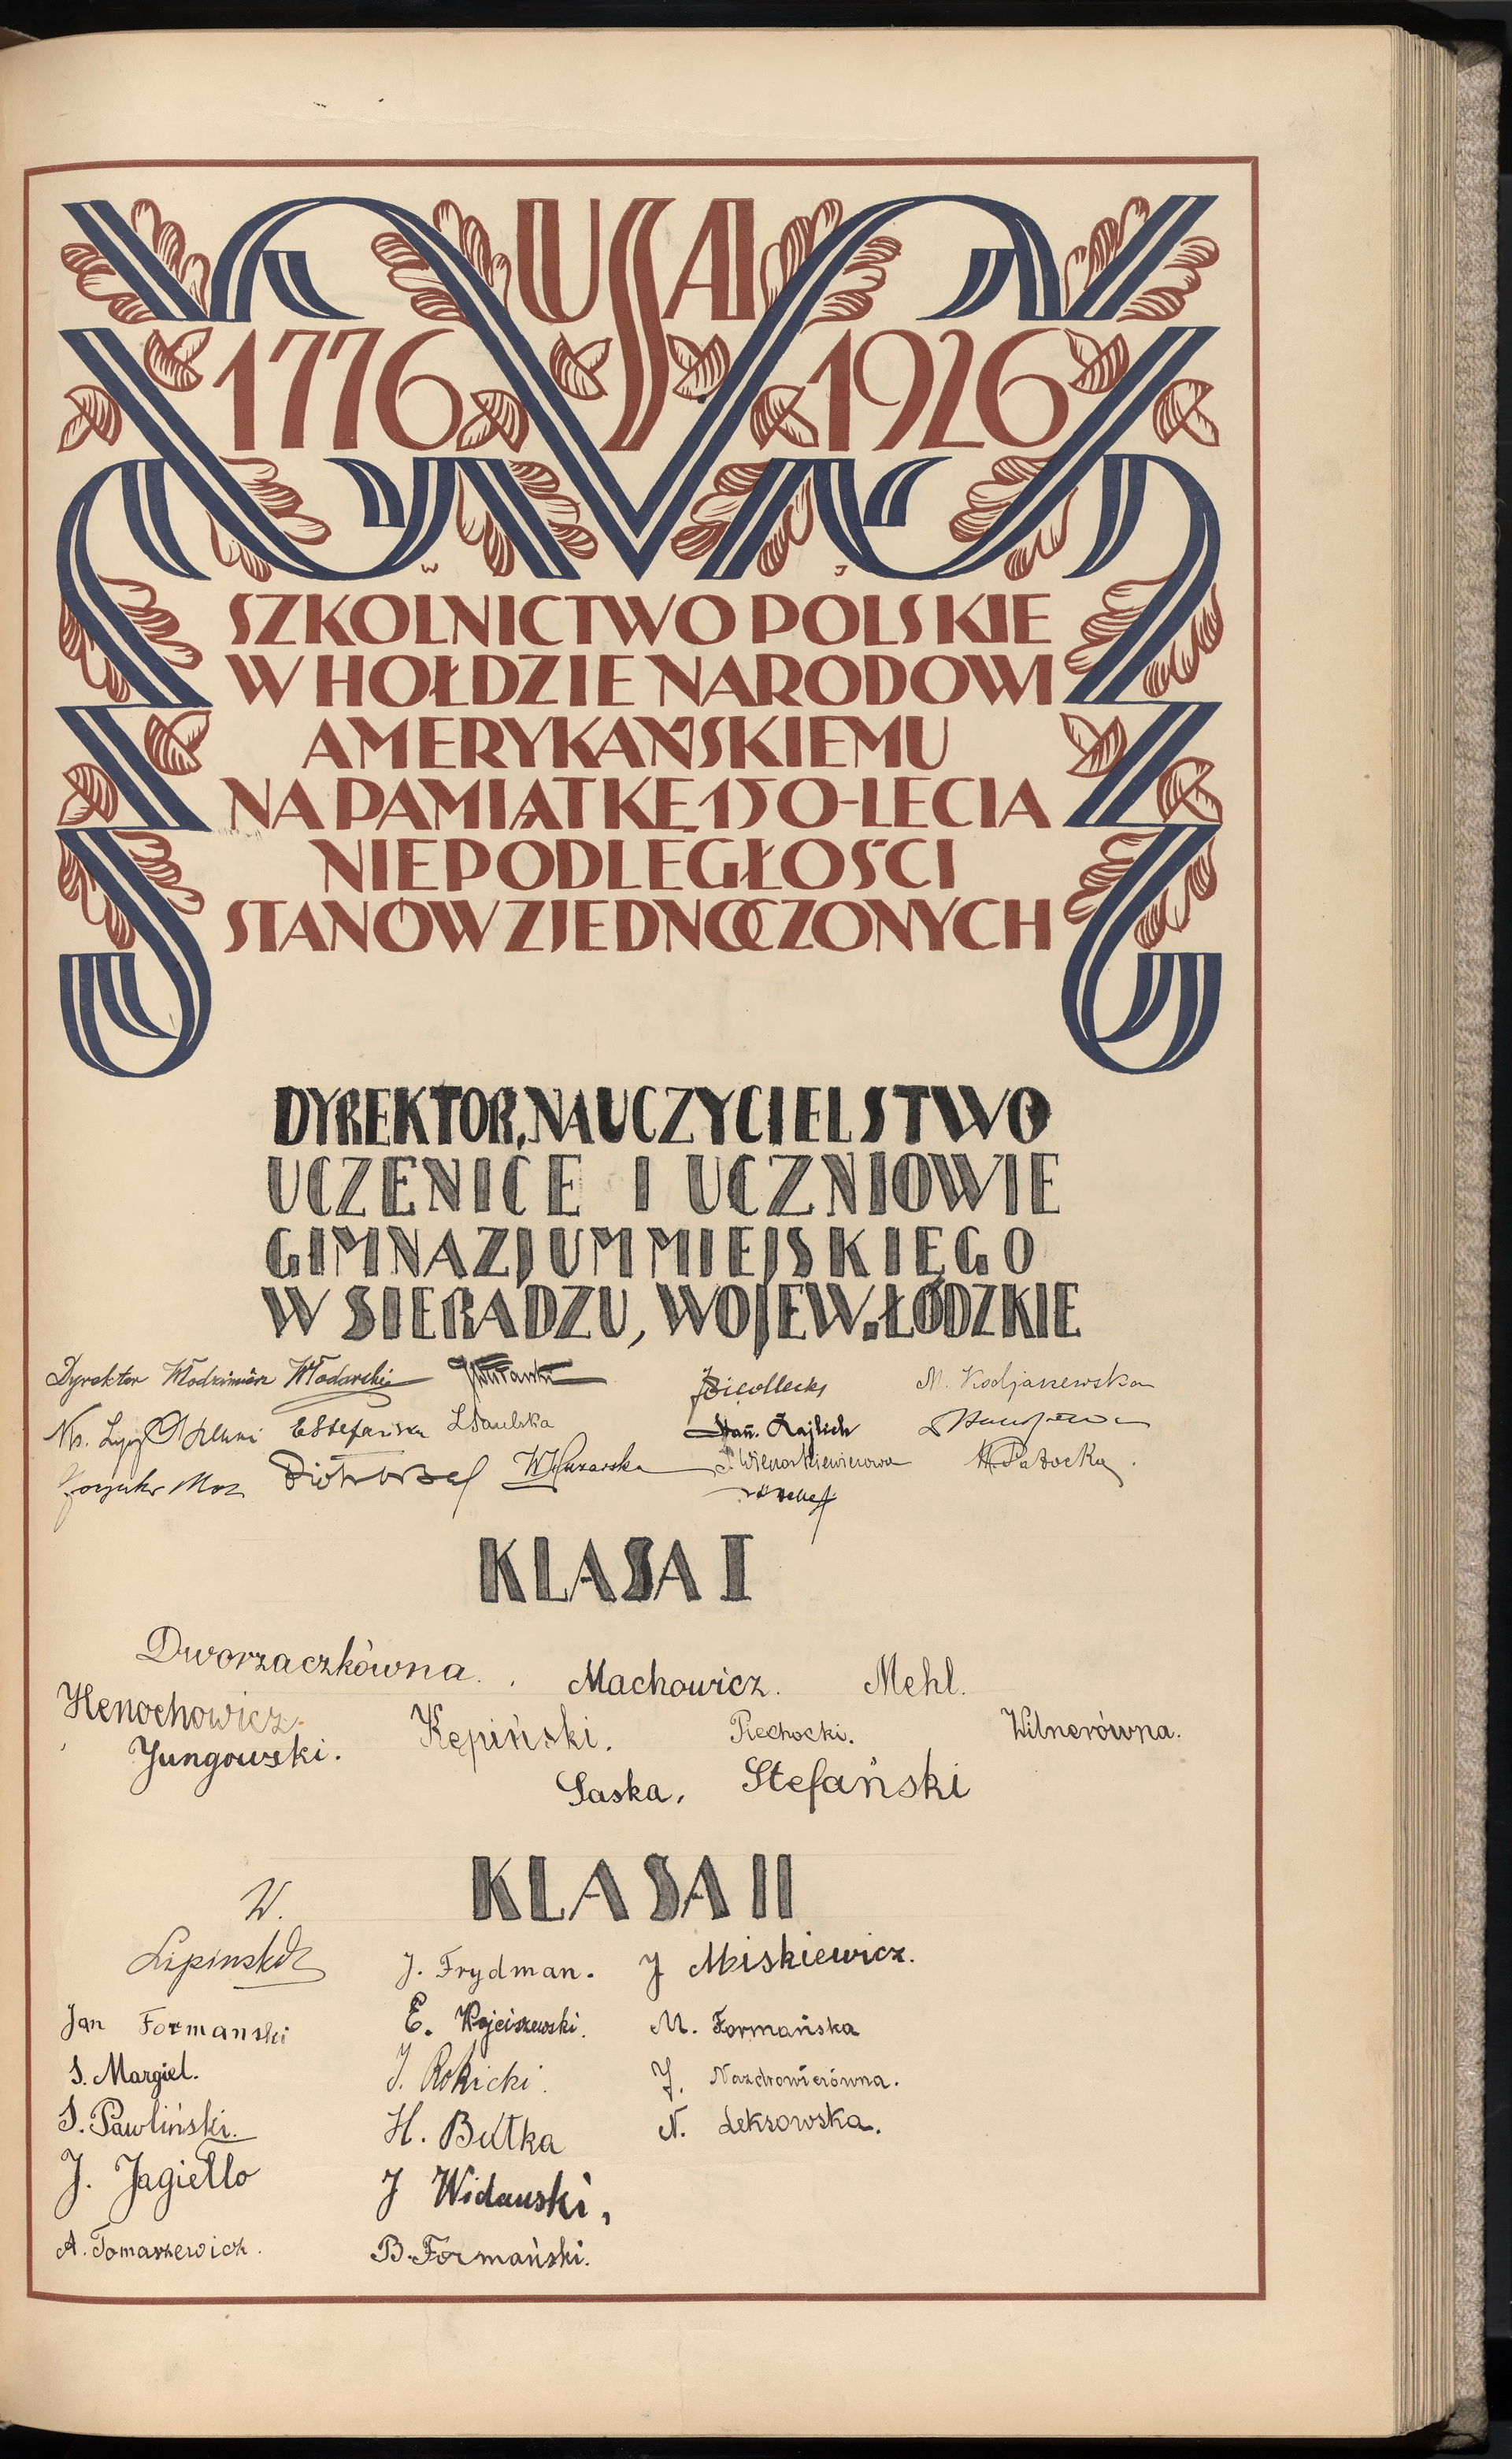 USA
1776 1926
W J
SZKOLNICTWO POLSKIE
W HOŁDZIE NARODOWI
AMERYKAŃSKIEMU
NA PAMIĄTKĘ 150-LECIA
NIEPODLEGŁOŚCI
STANÓW ZJEDNOCZONYCH
DYREKTOR, NAUCZYCIELSTWO
UCZENICE I UCZNIOWIE
GIMNAZJUM MIEJSKIEGO
W SIERADZU, WOJEW. ŁÓDZKIE
Dyrektor Włodzimierz Włodarski M. Kodjaszewska
EStefańska Stan. Rajlich
Piotr W. Mazarska H. Patocka.
KLASA I
Dworzaczkówna. Machowicz. Mehl.
Henochowicz. Kępiński. Piechocki. Wilnerówna.
Jungowski.
Saska. Stefański
KLASA II
W.
Lipinski J. Frydman. J Miskiewicz.
Jan Formanski E. Wojciszewski. M. Formańska
S. Margiel. J. Rokicki. J. Nazdrowierówna.
S. Pawliński. H. Butka N. Leksowska.
J. Jagiełło J Widawski.
A. Tomaszewicz. B. Formański.